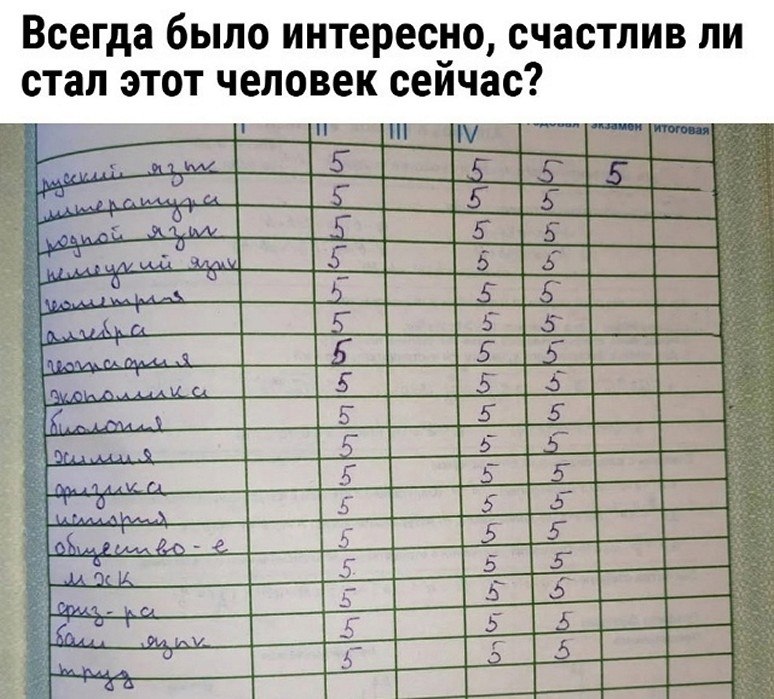 Всегда было интересно, счастлив ли
стал этот человек сейчас?
I II III IV годовая экзамен итоговая
русский язык 5 5 5 5
литература 5 5 5
родной язык 5 5 5
немецкий язык 5 5 5
геометрия 5 5 5
алгебра 5 5 5
география 5 5 5
экономика 5 5 5
биология 5 5 5
химия 5 5 5
физика 5 5 5
история 5 5 5
общество-е 5 5 5
МХК 5 5 5
физ-ра 5 5 5
баш язык 5 5 5
труд 5 5 5